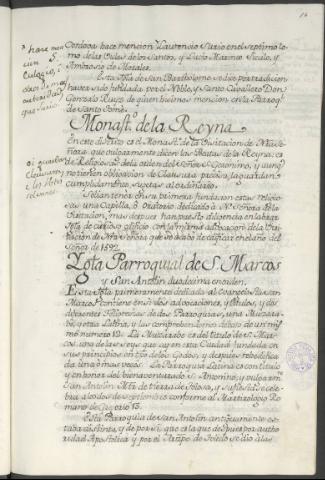 Cordoua hace mencion Laurencio Surio en el septimo to
mo de las Vidas de los Santos, y Lucio Marineo Siculo, y
Ambrosio de Morales.
Esta Igl.ª de San Bartholome se dice por tradicion
hauer sido fundada por el Noble, y Santo Cauallero Don
Gonzalo Ruiz de quien hicimos mencion en la Parroq.l
de Santo Thome.
Monast.º de la Reyna
En este districto es el Monast.º de la Visitacion de N.ª Se
ñora, que vulgarmente dicen las Beatas de la Reyna: es
de Religiosas de la orden del Señor S. Geronimo, y aunq.
no tienen obligacion de Clausura precisa, la guardan
cumplidamente, sujetas al ordinario.
Solian tener en su primera fundacion estas religio
sas una Capilla, ô Oratorio dedicado à N.ª Señora de la
Visitacion, mas despues han puesto diligencia en labrar
Igl.ª de curioso edificio con la misma advocacion de la Visi
tacion de N.ª Señora que se acabo de edificar en el año del
Señor de 1592.
Igl.ª Parroquial de S. Marcos
y San Antolin duodecima en orden.
Esta Igl.ª primeramente dedicada al Evangelista san
Marcos contiene en si dos advocaciones, y titulos, y dos
diferentes feligresias de dos Parroquias, una Muzarabe,
y otra Latina, y las comprehendemos debajo de un mis
mo numero 12. La Muzarabe es del titulo de S. Marcos
una de las seys que auia en esta Ciudad fundada en
sus principios en tpo de los Godos, y despues reedifica
da una ô mas veces. La Parroquia Latina es con titulo
y en honor del bienaventurado S. Antonino, y vulgar.te
San Antolin Mr. de tierra de Tolosa, y su fiesta se cele
bra a los dos de septiembre conforme al Martirologio Ro
mano de Gregorio 13.
Esta Parroquia de san Antolin antiguamente es
taba distinta, y de por si, que es la que despues por autho
ridad Apostolica y por el Arzpo de Toledo se dio a las